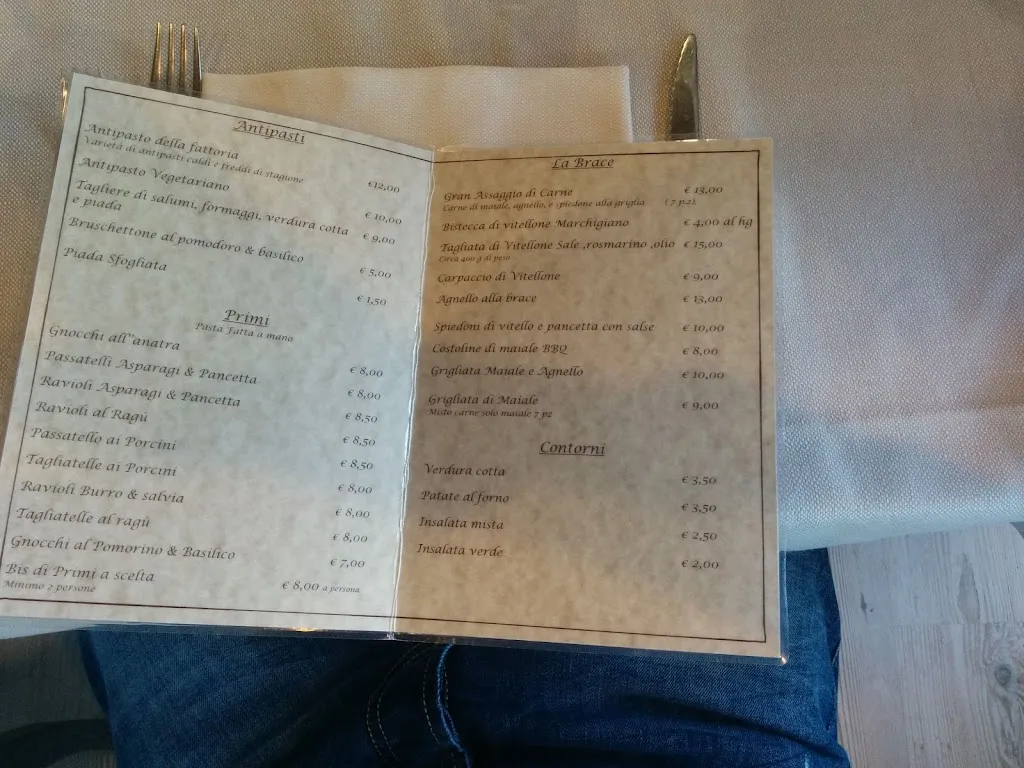 Antipasti
Antipasto della fattoria €12,00
Varietà di antipasti caldi e freddi di stagione
Antipasto Vegetariano € 10,00
Tagliere di salumi, formaggi, verdura cotta € 9,00
e piada
Bruschettone al pomodoro & basilico € 5,00
Piada Sfogliata € 1,50
Primi
Pasta Fatta a mano
Gnocchi all''anatra € 8,00
Passatelli Asparagi & Pancetta € 8,00
Ravioli Asparagi & Pancetta € 8,50
Ravioli al Ragù € 8,50
Passatello ai Porcini € 8,50
Tagliatelle ai Porcini € 8,00
Ravioli Burro & salvia € 8,00
Tagliatelle al ragù € 8,00
Gnocchi al Pomorino & Basilico € 7,00
Bis di Primi a scelta € 8,00 a persona
Minimo 2 persone
La Brace
Gran Assaggio di Carne € 13,00
Carne di maiale, agnello, e spiedone alla griglia ( 7 pz).
Bistecca di vitellone Marchigiano € 4,00 al hg
Tagliata di Vitellone Sale ,rosmarino ,olio € 15,00
Circa 400 g di peso
Carpaccio di Vitellone € 9,00
Agnello alla brace € 13,00
Spiedoni di vitello e pancetta con salse € 10,00
Costoline di maiale BBQ € 8,00
Grigliata Maiale e Agnello € 10,00
Grigliata di Maiale € 9,00
Misto carne solo maiale 7 pz
Contorni
Verdura cotta € 3,50
Patate al forno € 3,50
Insalata mista € 2,50
Insalata verde € 2,00